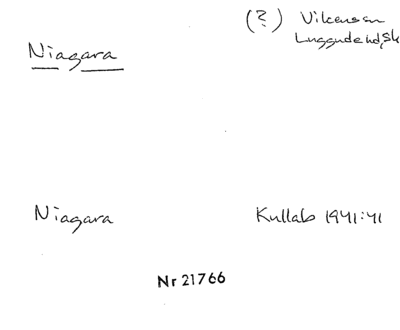 (?) Vikensan
Luggude hd, Sk
Niagara
Niagara Kullab 1941:41
Nr 21766